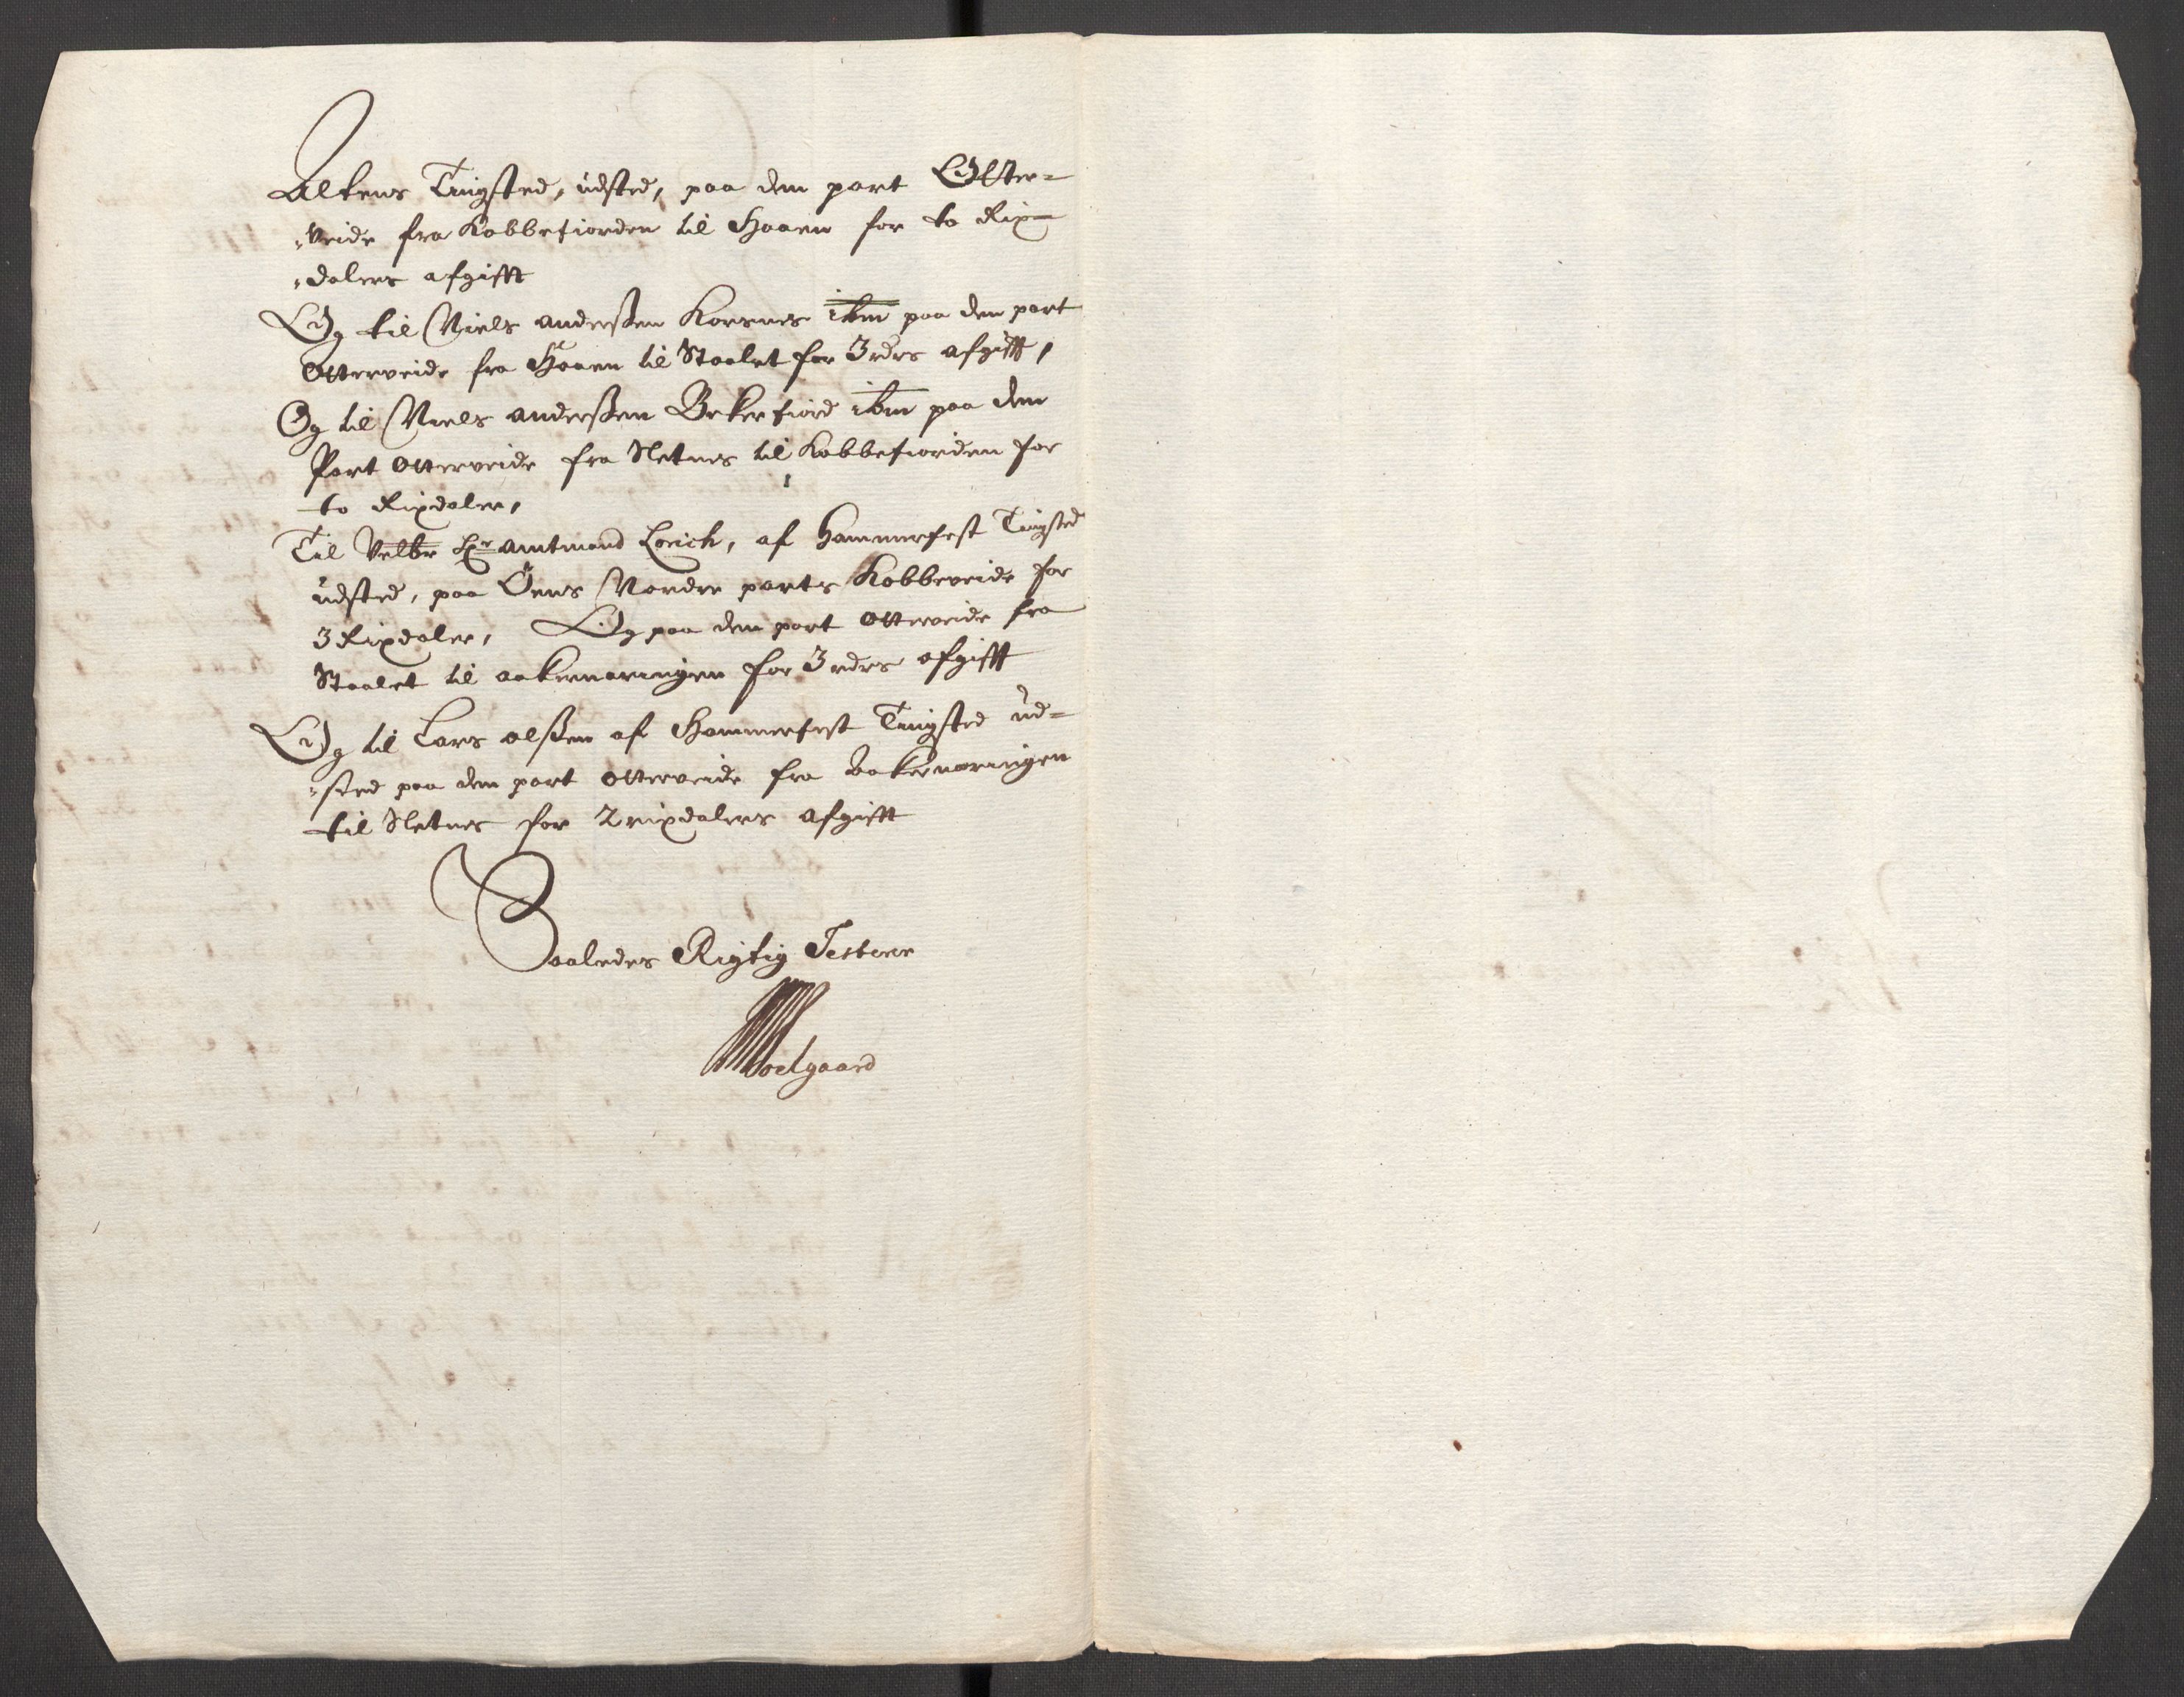 Altens Tingsted, udsted, paa den part Otter-
„veide fra Kobbefiorden til Haaen for to Rix-
„dalers afgifft
Og til Niels anderßen Korsnes ibm paa den part
Otterveide fra Haaen til Staalet for 3 rdrs afgifft,
Og til Niels anderßen Bekerfiord ibm paa den
Part Otterveide fra Sletnes til Kobbefiorden for
to Rixdaler,
Til Velbr Hr amtmand Lorich, af Hammerfest Tingsted
udsted, paa Öens Nordre parts Kobbeveide for
3 Rixdaler, Og paa den part Otterveide fra
Staalet til aakernæringen for 3 rdrs afgifft
Og til Lars olßen af Hammerfest Tingsted ud-
„sted paa den part otterveide fra aakernæringen
til Sletnes for 2 rixdalers afgifft
Saaledes Rigtig Testerer